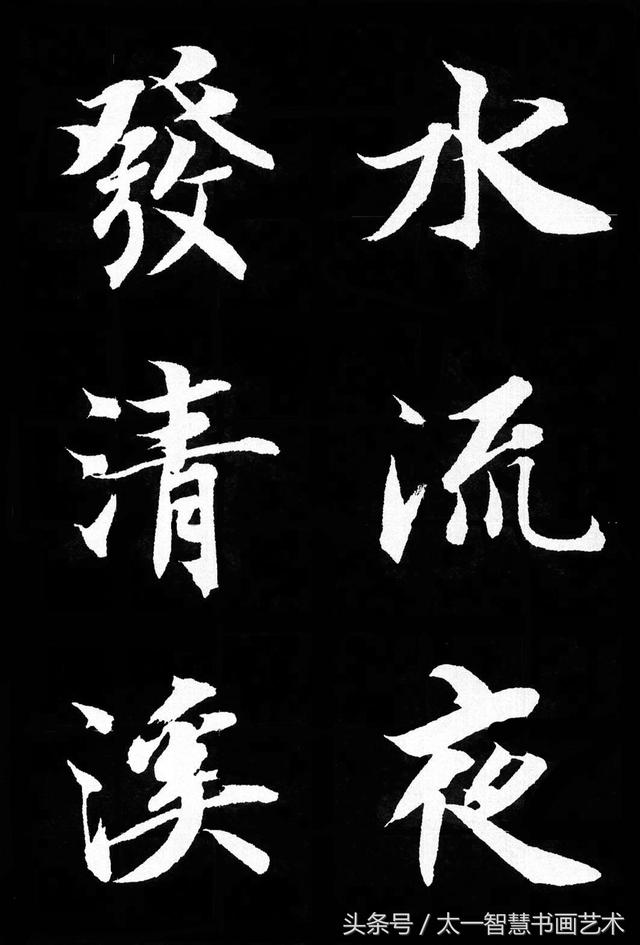 水流夜
發清溪
头条号 / 太一智慧书画艺术